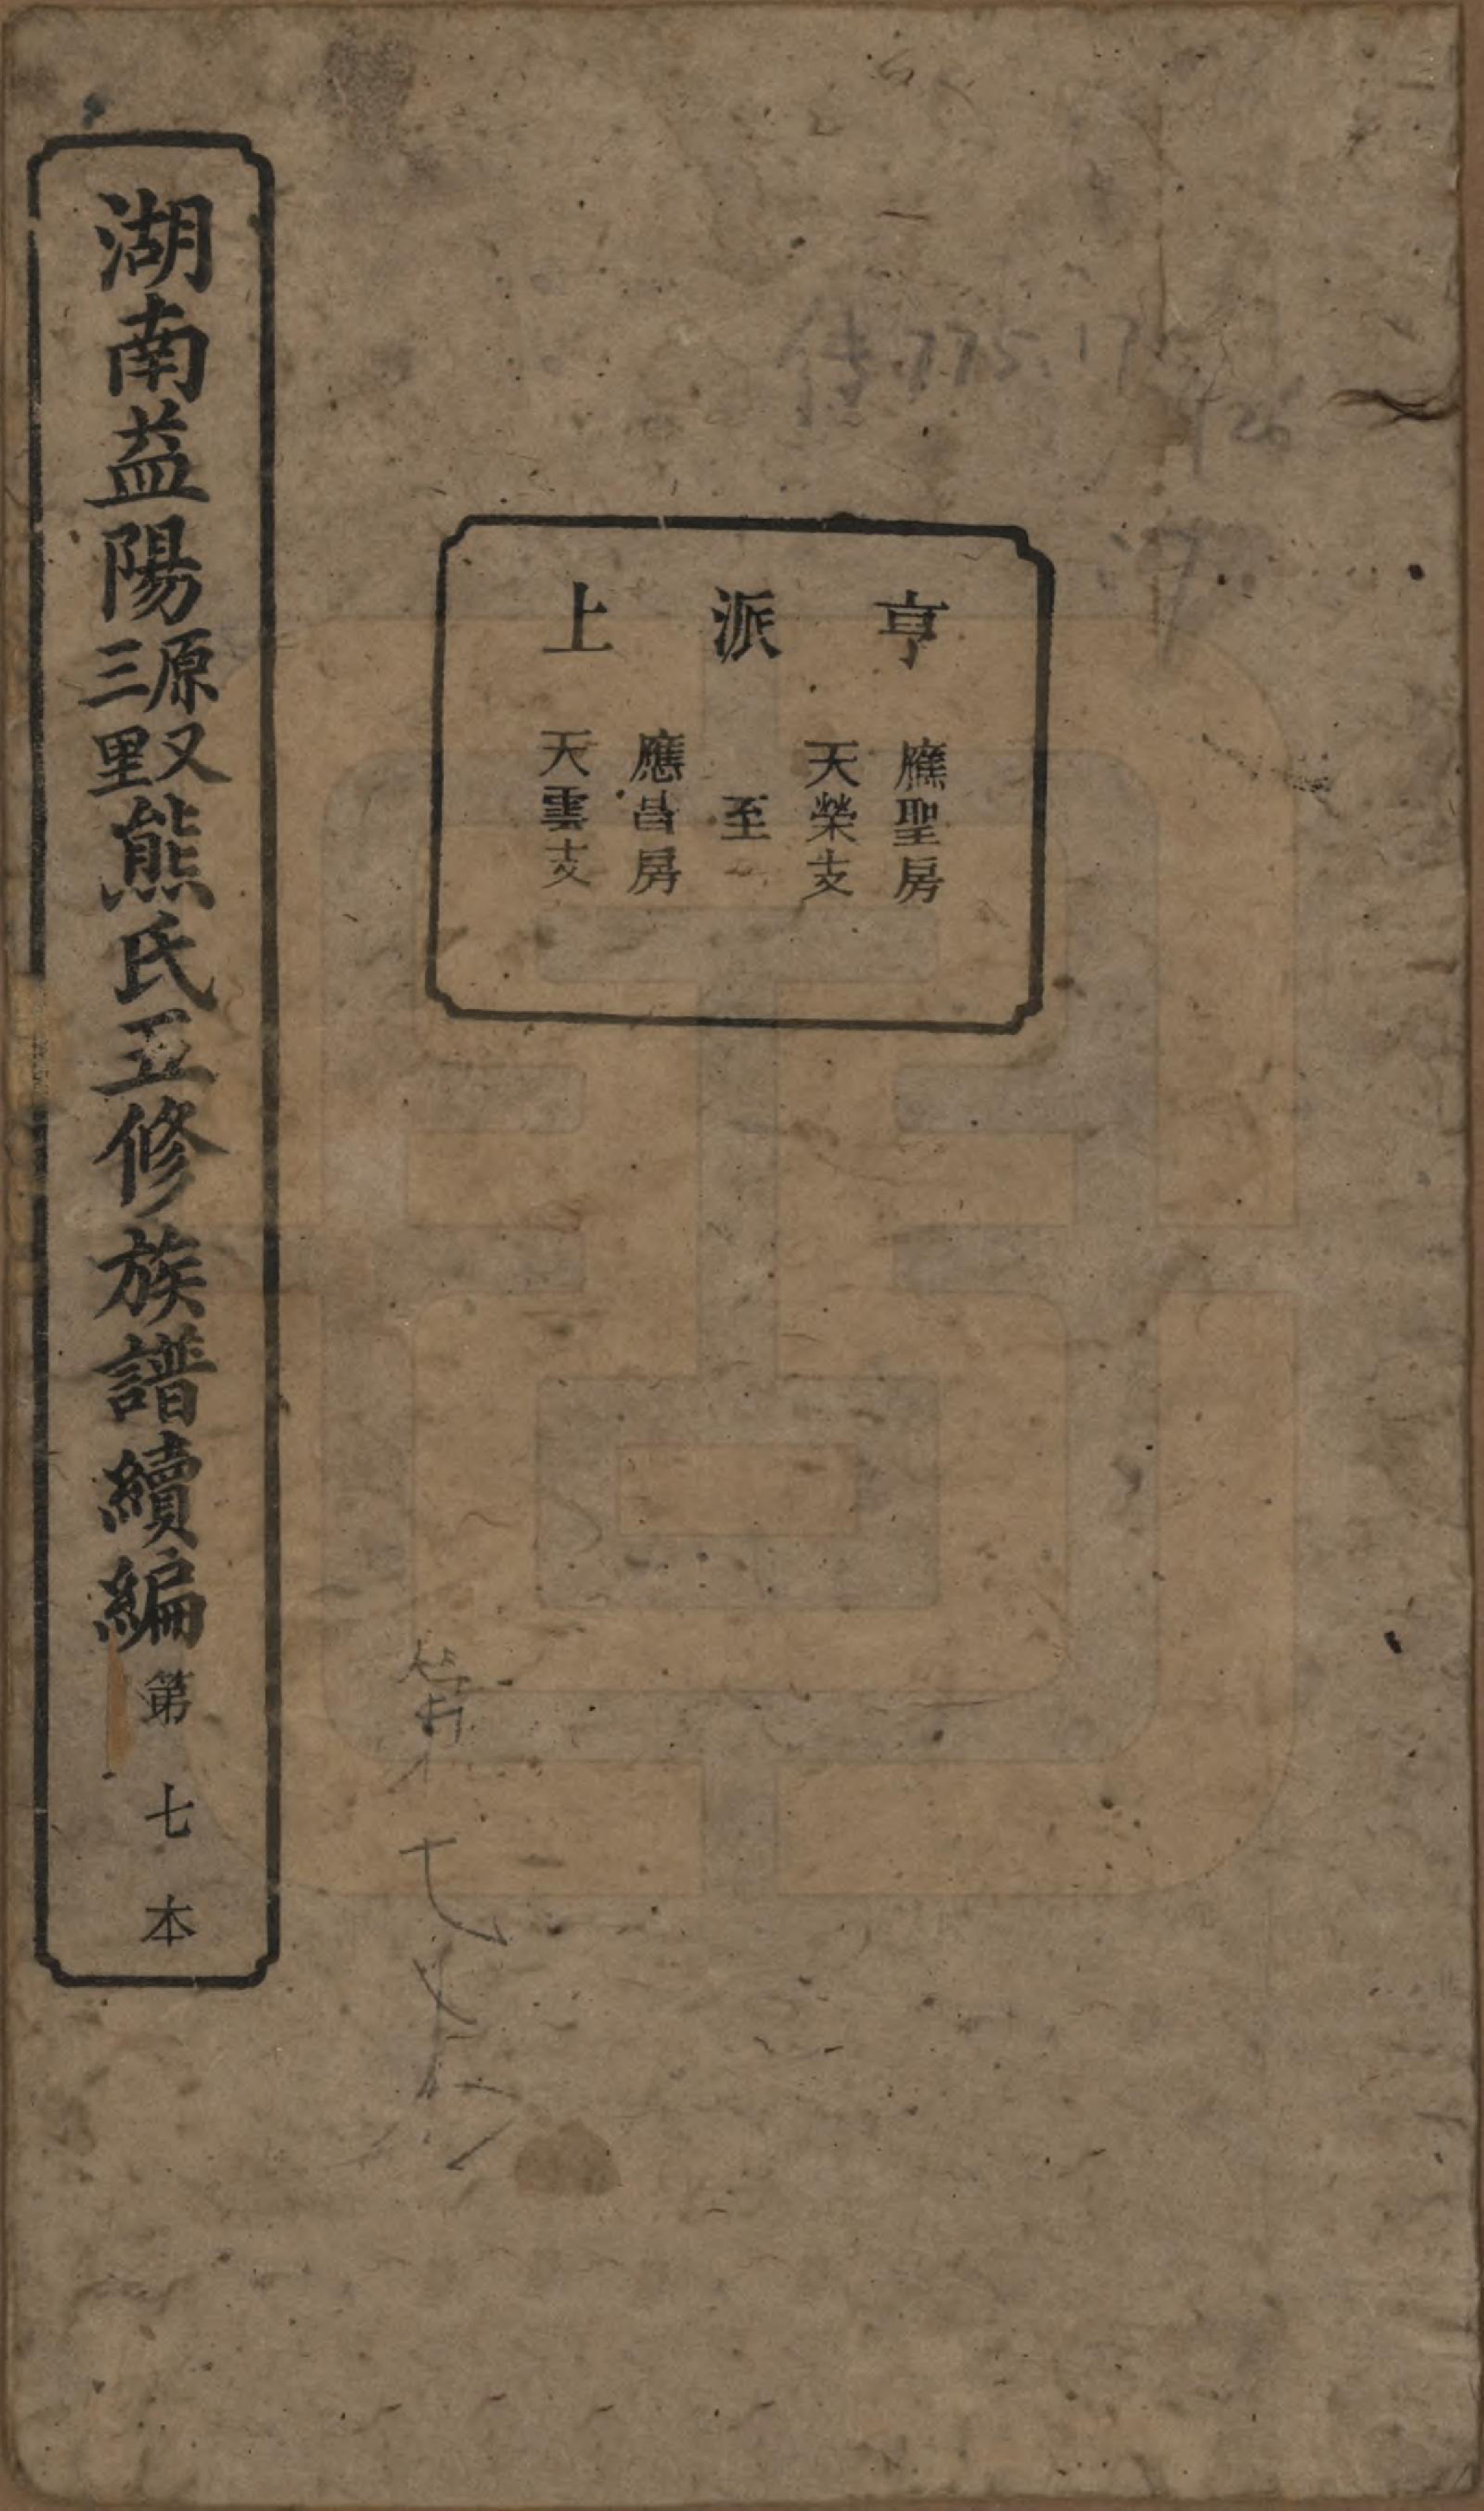 湖南益陽原又三里熊氏五修族譜續編第七本
亨派上
應聖房
天榮支
至
應昌房
天雲支